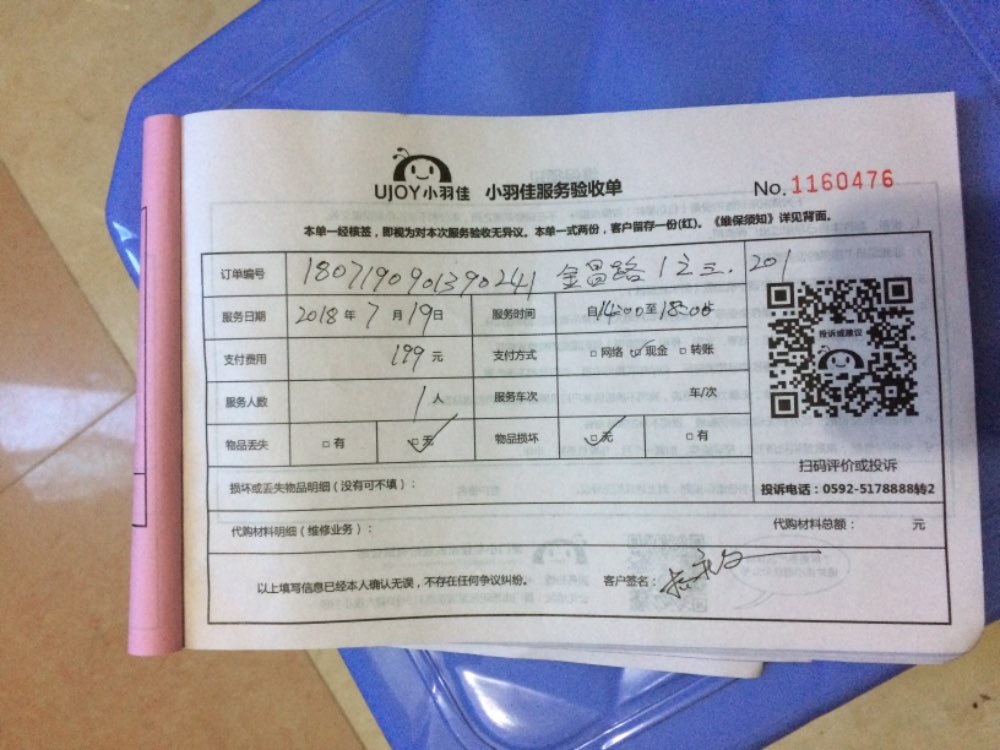 UJOY小羽佳 小羽佳服务验收单 No. 1160476
本单一经核签，即视为对本次服务验收无异议。本单一式两份，客户留存一份(红)。《维保须知》详见背面。
订单编号 1807190901390241 金昌路1之三.201
服务日期 2018年7月19日 服务时间 自14:00至18:00时
支付费用 199元 支付方式 □网络 ☑现金 □转账
服务人数 1人 服务车次 车/次
物品丢失 □有 ☑无 物品损坏 ☑无 □有
投诉或建议
扫码评价或投诉
投诉电话：0592-5178888转2
损坏或丢失物品明细（没有可不填）：
代购材料明细（维修业务）： 代购材料总额： 元
以上填写信息已经本人确认无误，不存在任何争议纠纷。 客户签名：